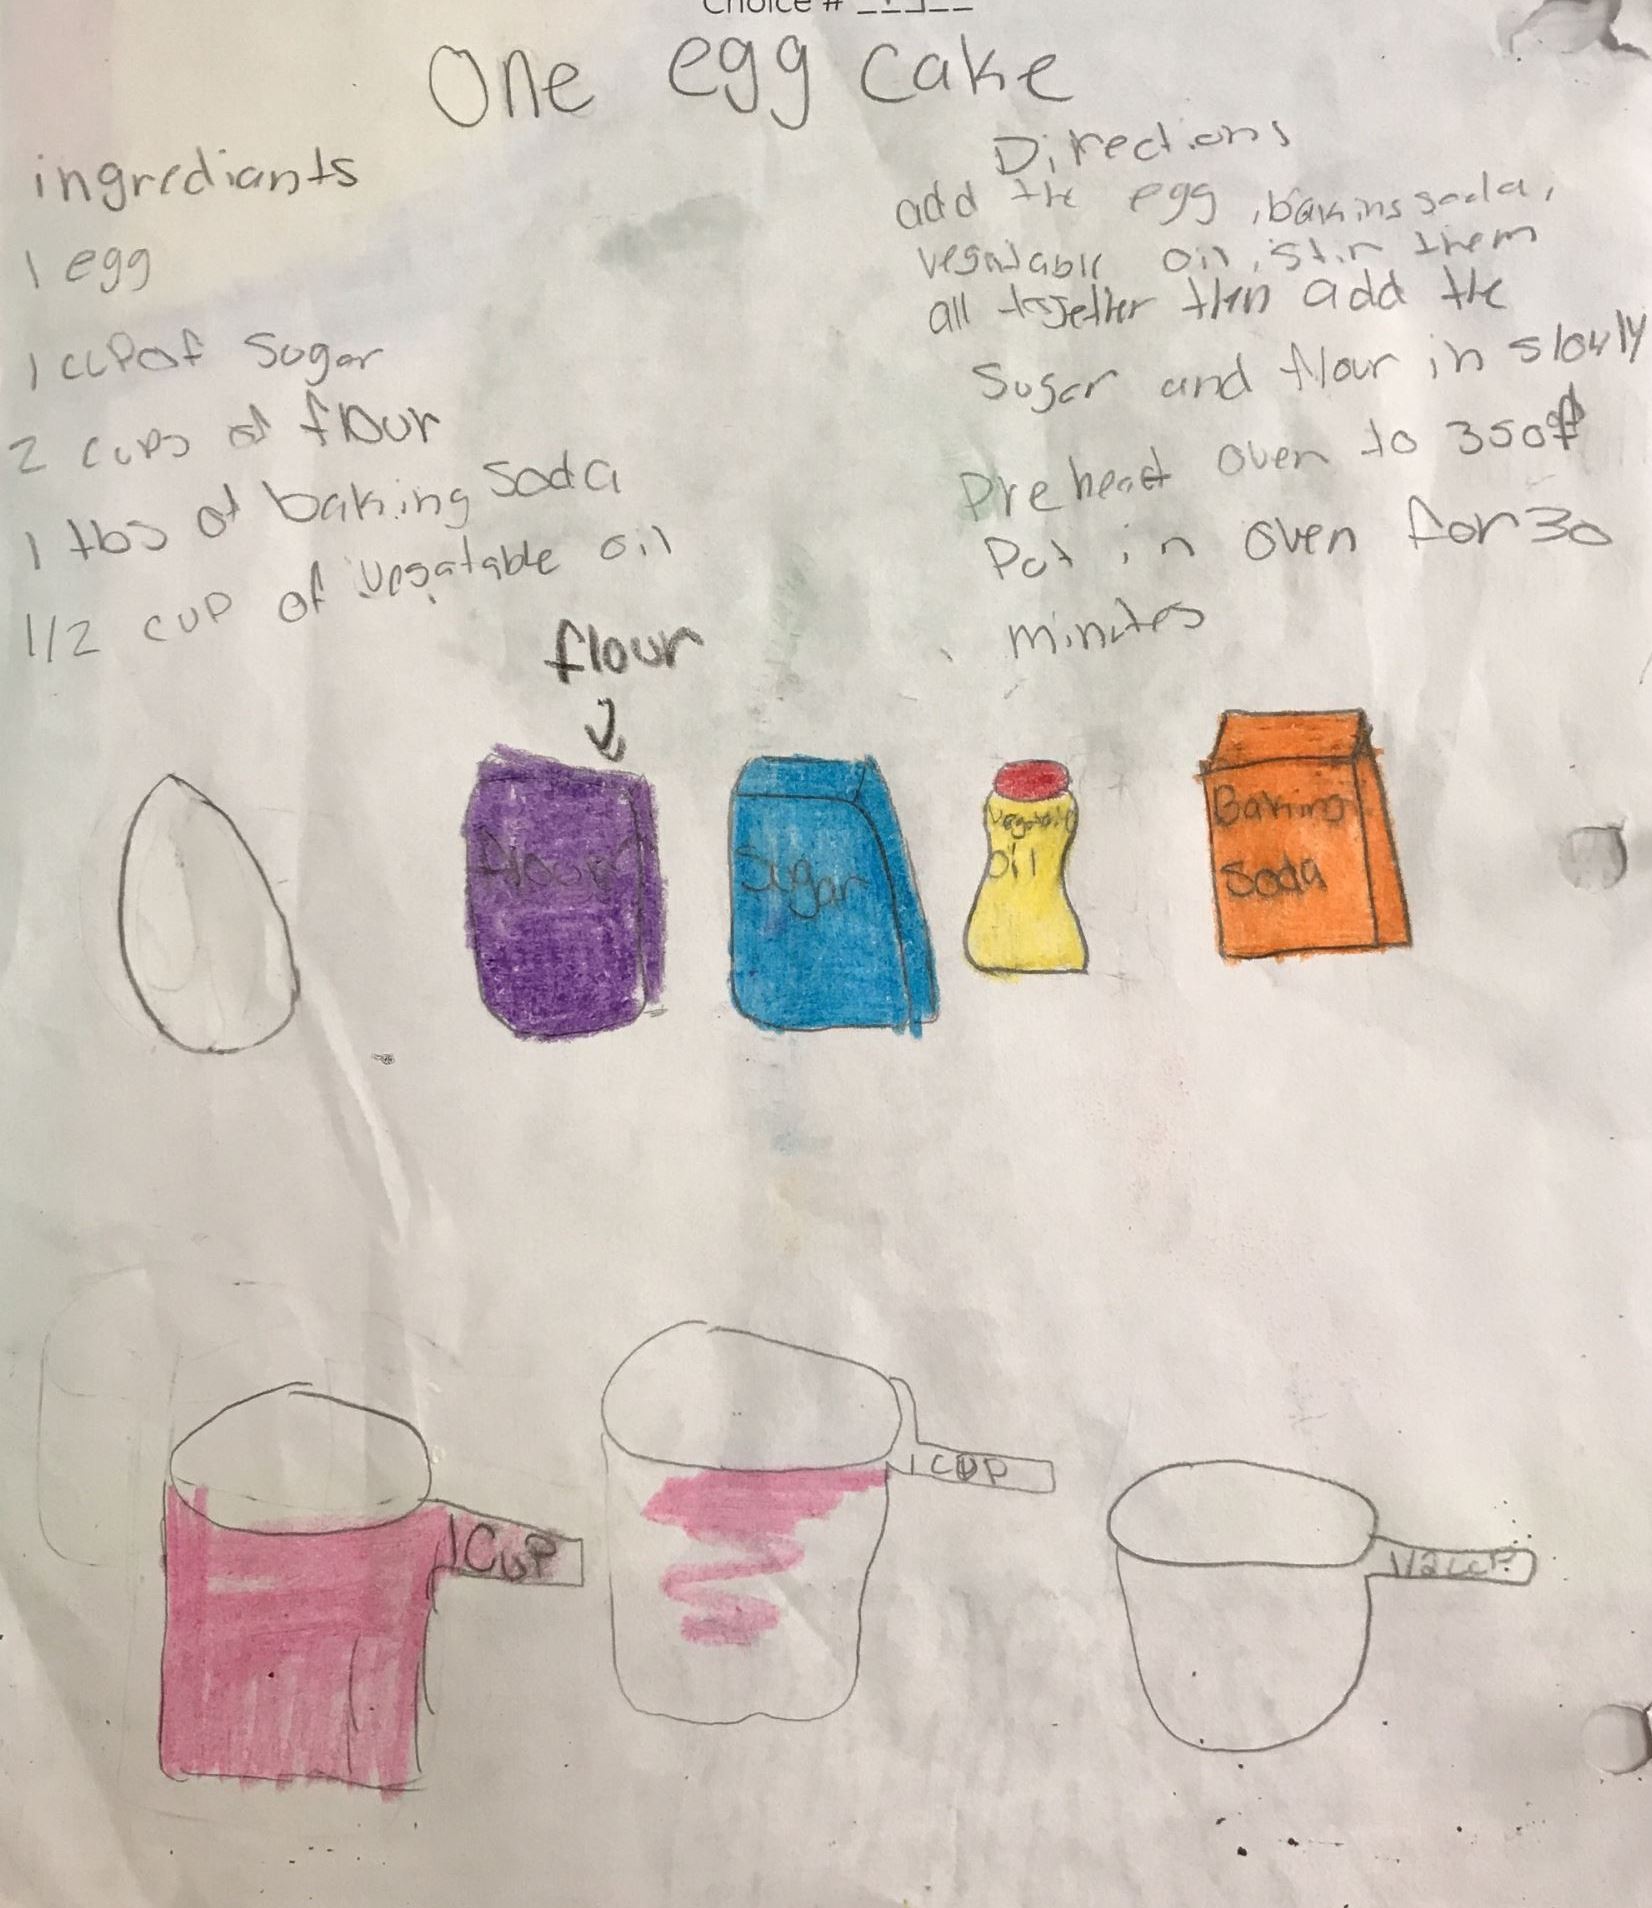 Choice #
One egg cake
ingrediants
1 egg
1 cup of Sugar
2 cups of flour
1 tbs of baking soda
1/2 cup of vegatable oil
Directions
add the egg, baking soda,
vegatable oil, stir them
all together then add the
Sugar and flour in slowly
Preheat oven to 350°f
Put in oven for 30
minutes
flour
flour
Sugar
vegatable
oil
Baking
Soda
1 Cup
1 CUP
1/2 cup